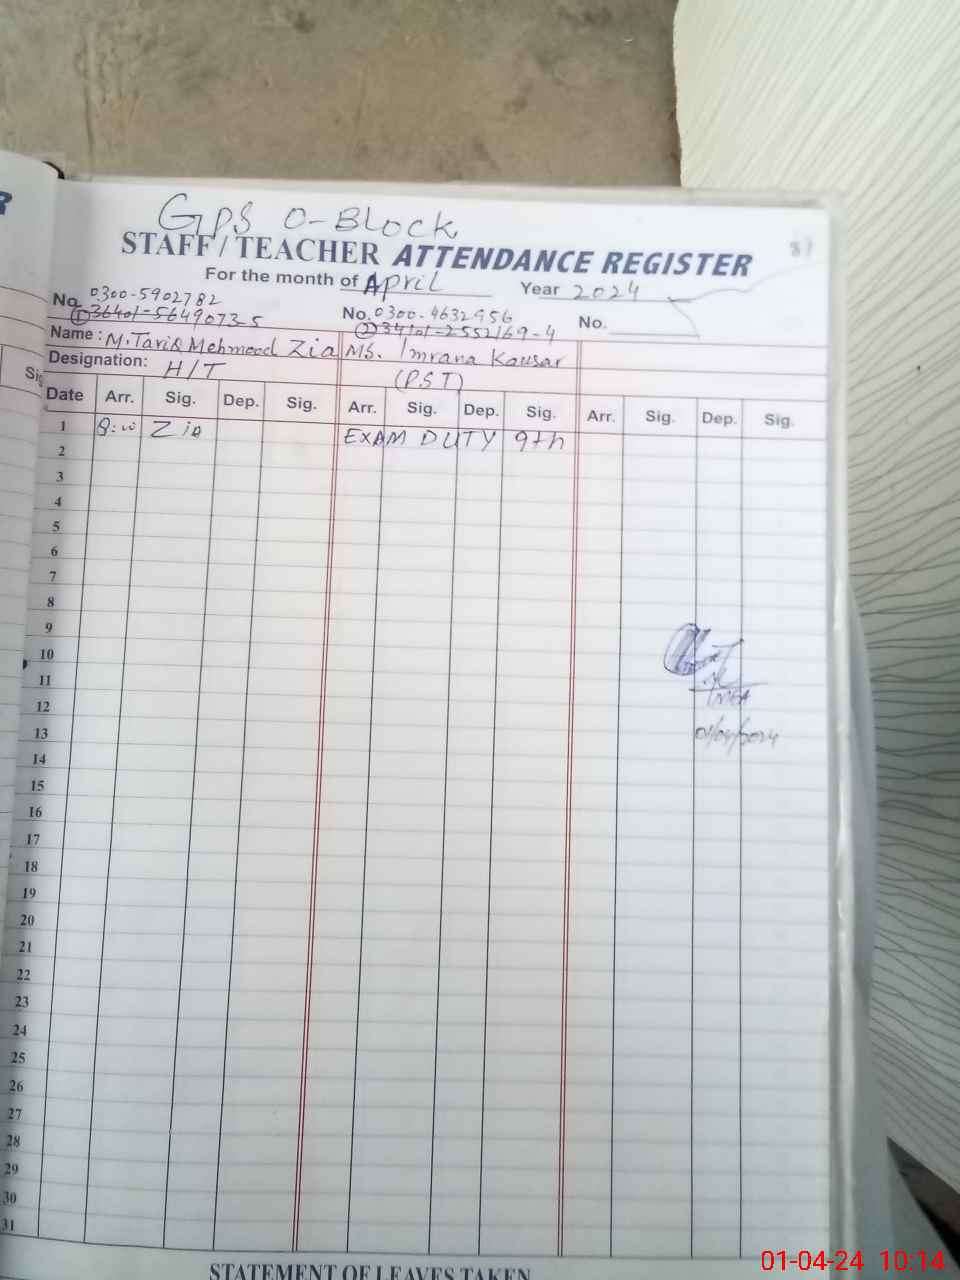 R
GPS O-BLock
STAFF / TEACHER ATTENDANCE REGISTER
For the month of April Year 2024
No. 0300-5902782 No. 0300-4632956 No.
① 36401-5649073-5 ② 34101-2552169-4
Name : M. Tariq Mehmood Zia Ms. Imrana Kausar
Designation: H/T (P.S.T)
Sig
Date Arr. Sig. Dep. Sig. Arr. Sig. Dep. Sig. Arr. Sig. Dep. Sig.
1 Zia EXAM DUTY 9th
2
3
4
5
6
7
8
9
10
11
12
13 01/04/2024
14
15
16
17
18
19
20
21
22
23
24
25
26
27
28
29
30
31
STATEMENT OF LEAVES TAKEN
01-04-24 10:14